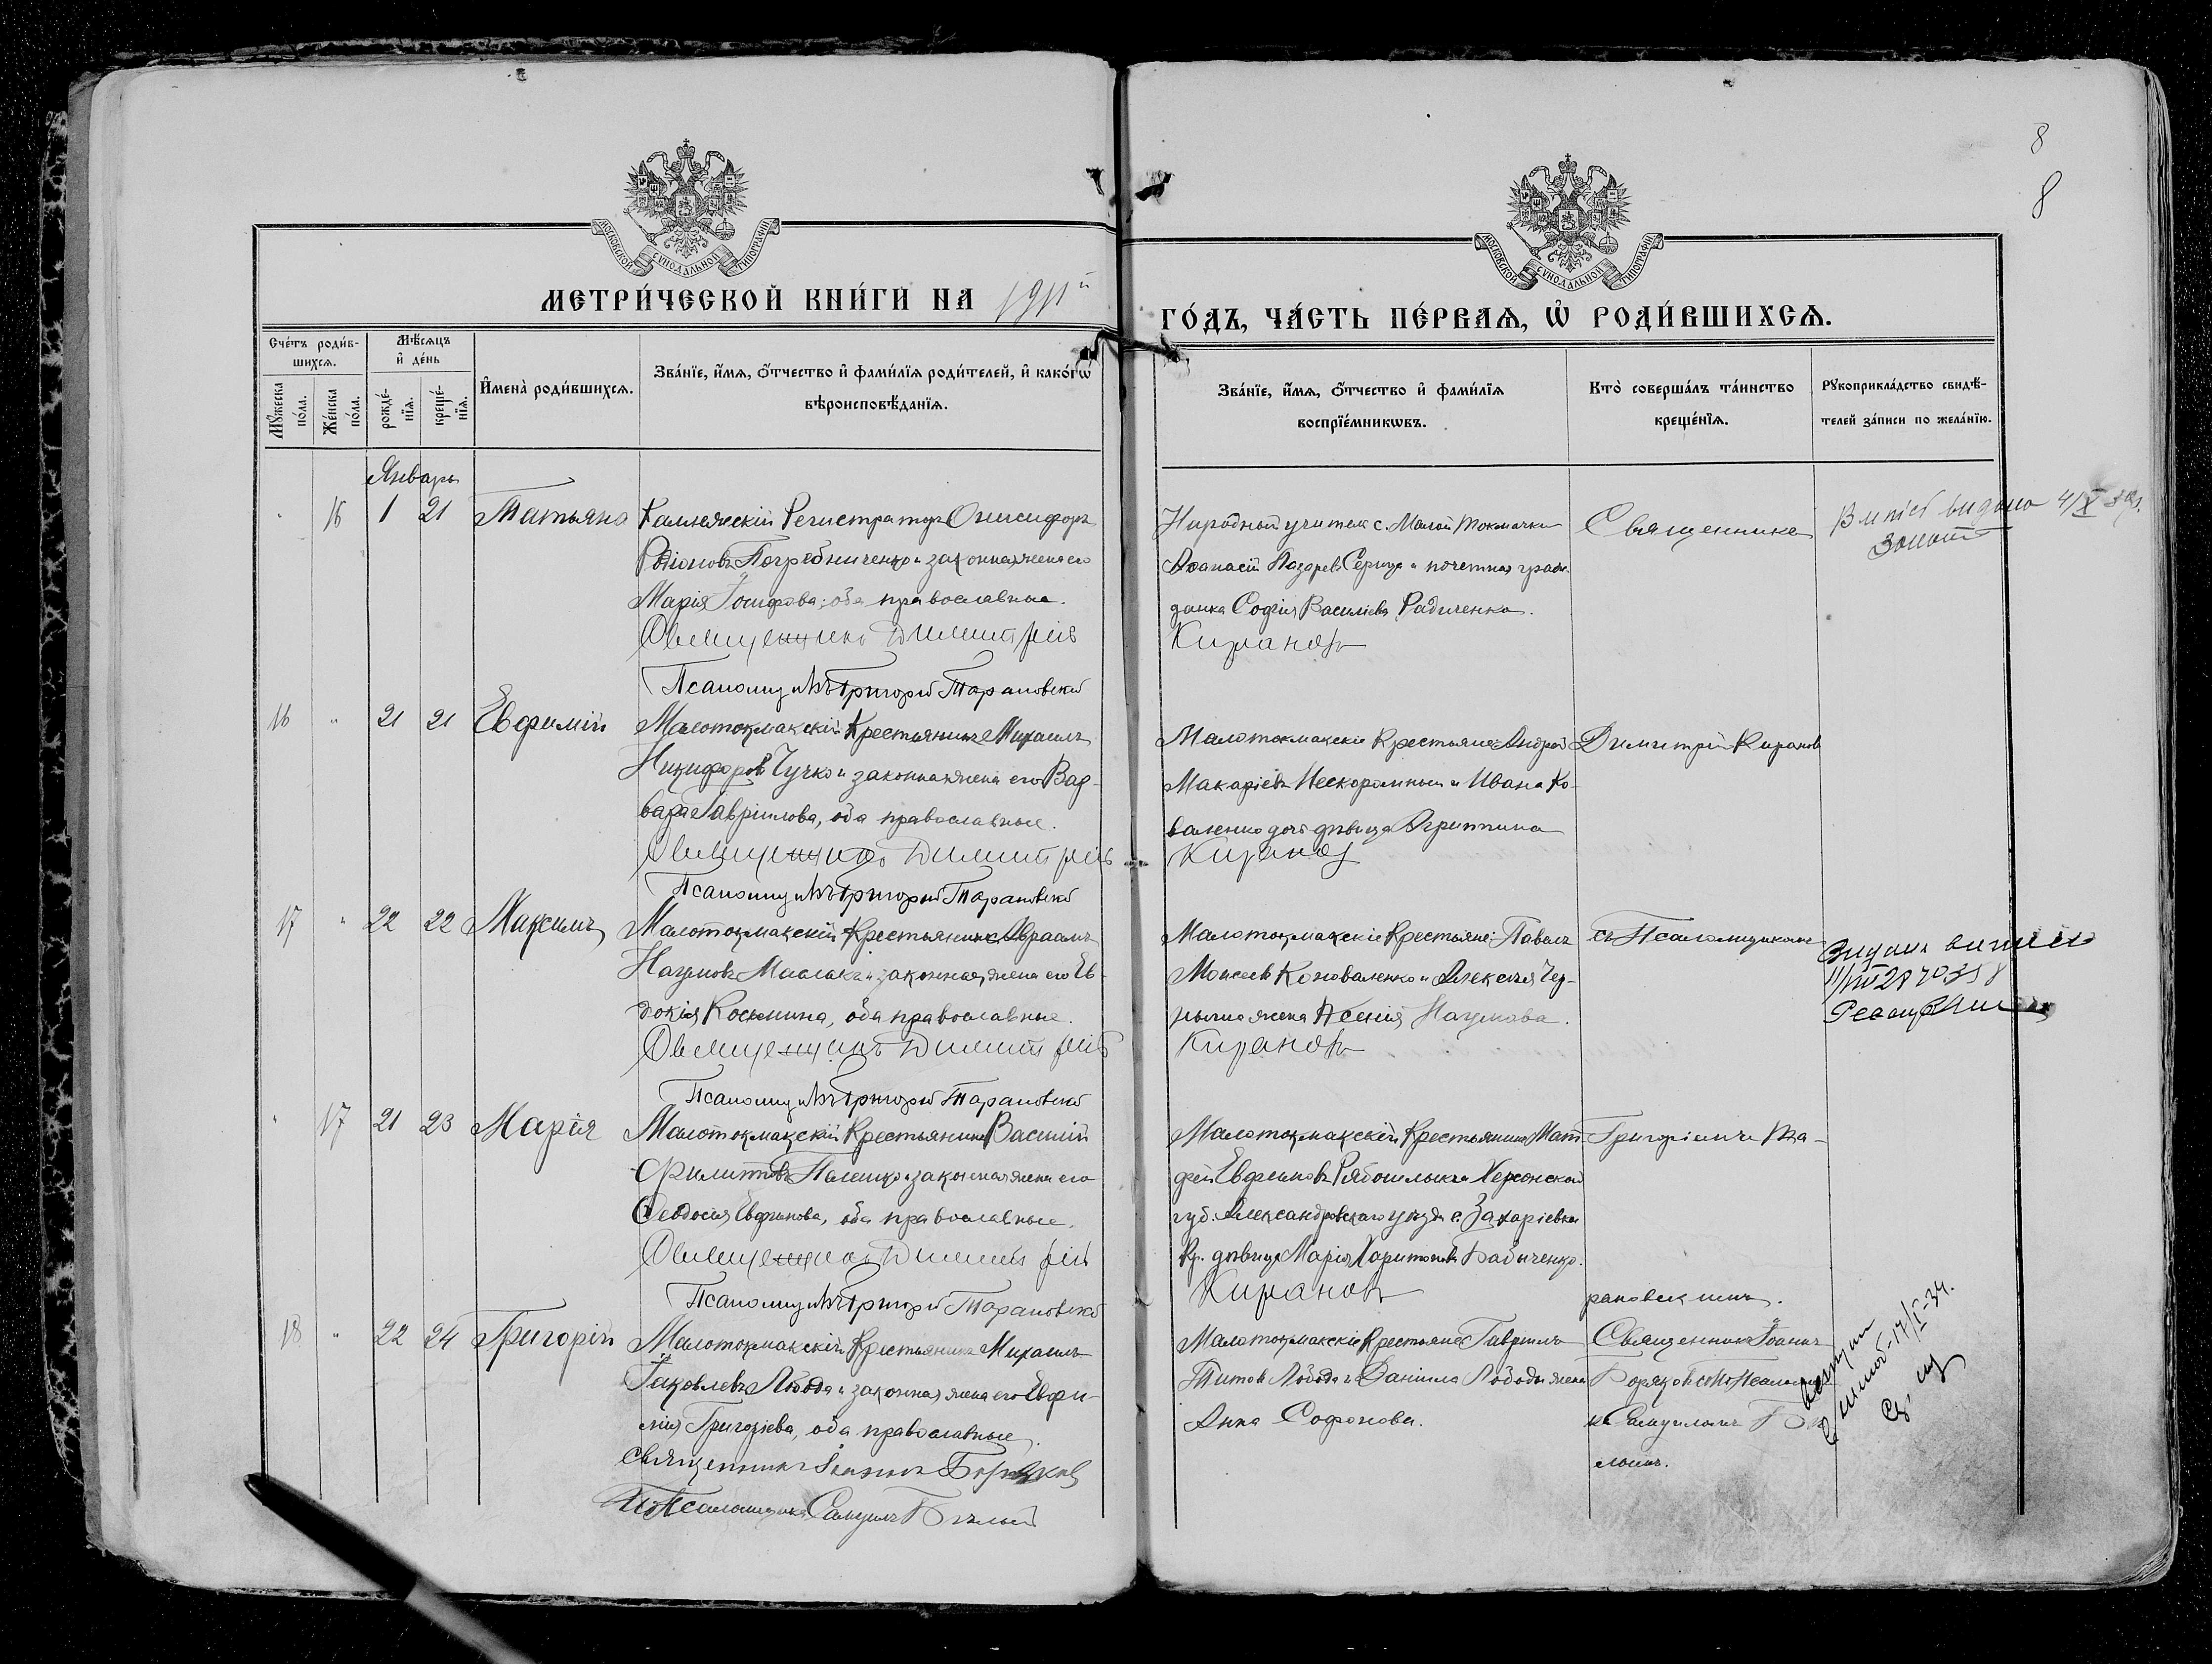 8
8
МОСКОВСКОЙ СѴНОДАЛЬНОЙ ТИПОГРАФІИ
МОСКОВСКОЙ СѴНОДАЛЬНОЙ ТИПОГРАФІИ
МЕТРИ́ЧЕСКОЙ КНИ́ГИ НА 1911й
ГО́ДЪ, ЧА́СТЬ ПЕ́РВАѦ, Ѡ҆ РОДИ́ВШИХСѦ.
Сче́тъ роди́в-
шихсѧ.
Мꙋ́жеска по́ла.
Же́нска по́ла.
Мѣ́сѧцъ
и҆ де́нь
рожде́-
нїѧ.
креще́-
нїѧ.
И҆мена̀ роди́вшихсѧ.
Зва́нїе, и҆́мѧ, ѻ҆́тчество и҆ фами́лїѧ роди́телей, и҆ како́гѡ
вѣроисповѣ́данїѧ.
Зва́нїе, и҆́мѧ, ѻ҆́тчество и҆ фами́лїѧ
воспрїе́мникѡвъ.
Кто̀ соверша́лъ та́инство
креще́нїѧ.
Рꙋкоприкла́дство свидѣ́-
телей за́писи по жела́нїю.
Январь
" 16 1 21 Татьяна
Регистраторъ Онисифоръ
Родіоновъ Погребниченко и законная жена его
Марія Іосифова; оба православные.
Священникъ Димитрій
Псаломщикъ Григорій Тарановскій
Народный учитель с. Малой Токмачки
Аѳанасій Лазаревъ Середа и почетная граж-
данка Софія Васильева Радиченко.
Кирановъ
Священникъ
видано 4/X
16 " 21 21 Евфимій
Малотокмакскій Крестьянинъ Михаилъ
Никифоровъ Чучко и законная жена его Вар-
вара Гавріилова, оба православные.
Священникъ Димитрій
Псаломщикъ Григорій Тарановскій
Малотокмакскіе Крестьяне: Андрей
Макаріевъ Нескоромный и Ивана Ко-
валенко дочь дѣвица Агриппина
Кирановъ
Димитрій Кирановъ
17 " 22 22 Максимъ
Малотокмакскій Крестьянинъ Авраамъ
Наумовъ Маслакъ и законная жена его Ев-
докія Косьмина, оба православные.
Священникъ Димитрій
Псаломщикъ Григорій Тарановскій
Малотокмакскіе Крестьяне: Павелъ
Моисеевъ Коноваленко и Алексѣя Чер-
жена Ксенія Наумова.
Кирановъ
съ Псаломщикомъ
" 17 21 23 Марія
Малотокмакскій Крестьянинъ Василій
Филипповъ и законная жена его
Ѳеодосія Евфимова, оба православные.
Священникъ Димитрій
Псаломщикъ Григорій Тарановскій
Малотокмакскій Крестьянинъ Мат-
фей Евфимовъ и Херсонской
губ. Александровскаго уѣзда с. Захаріевки
Кр. дѣвица Марія Харитонова Бабиченко.
Кирановъ
Григоріемъ Та-
рановскимъ.
18 " 22 24 Григорій
Малотокмакскій Крестьянинъ Михаилъ
Іаковлевъ Лобода и законная жена его Евфи-
мія Григоріева, оба православные.
Священникъ Іоаннъ Боряковъ
Псаломщика Самуилъ Бѣлый
Малотокмакскіе Крестьяне: Гавріилъ
Титовъ Лобода и Даніила Лободы жена
Анна Софонова.
Священникъ Іоаннъ
Боряковъ
Самуиломъ Бѣ-
лымъ.